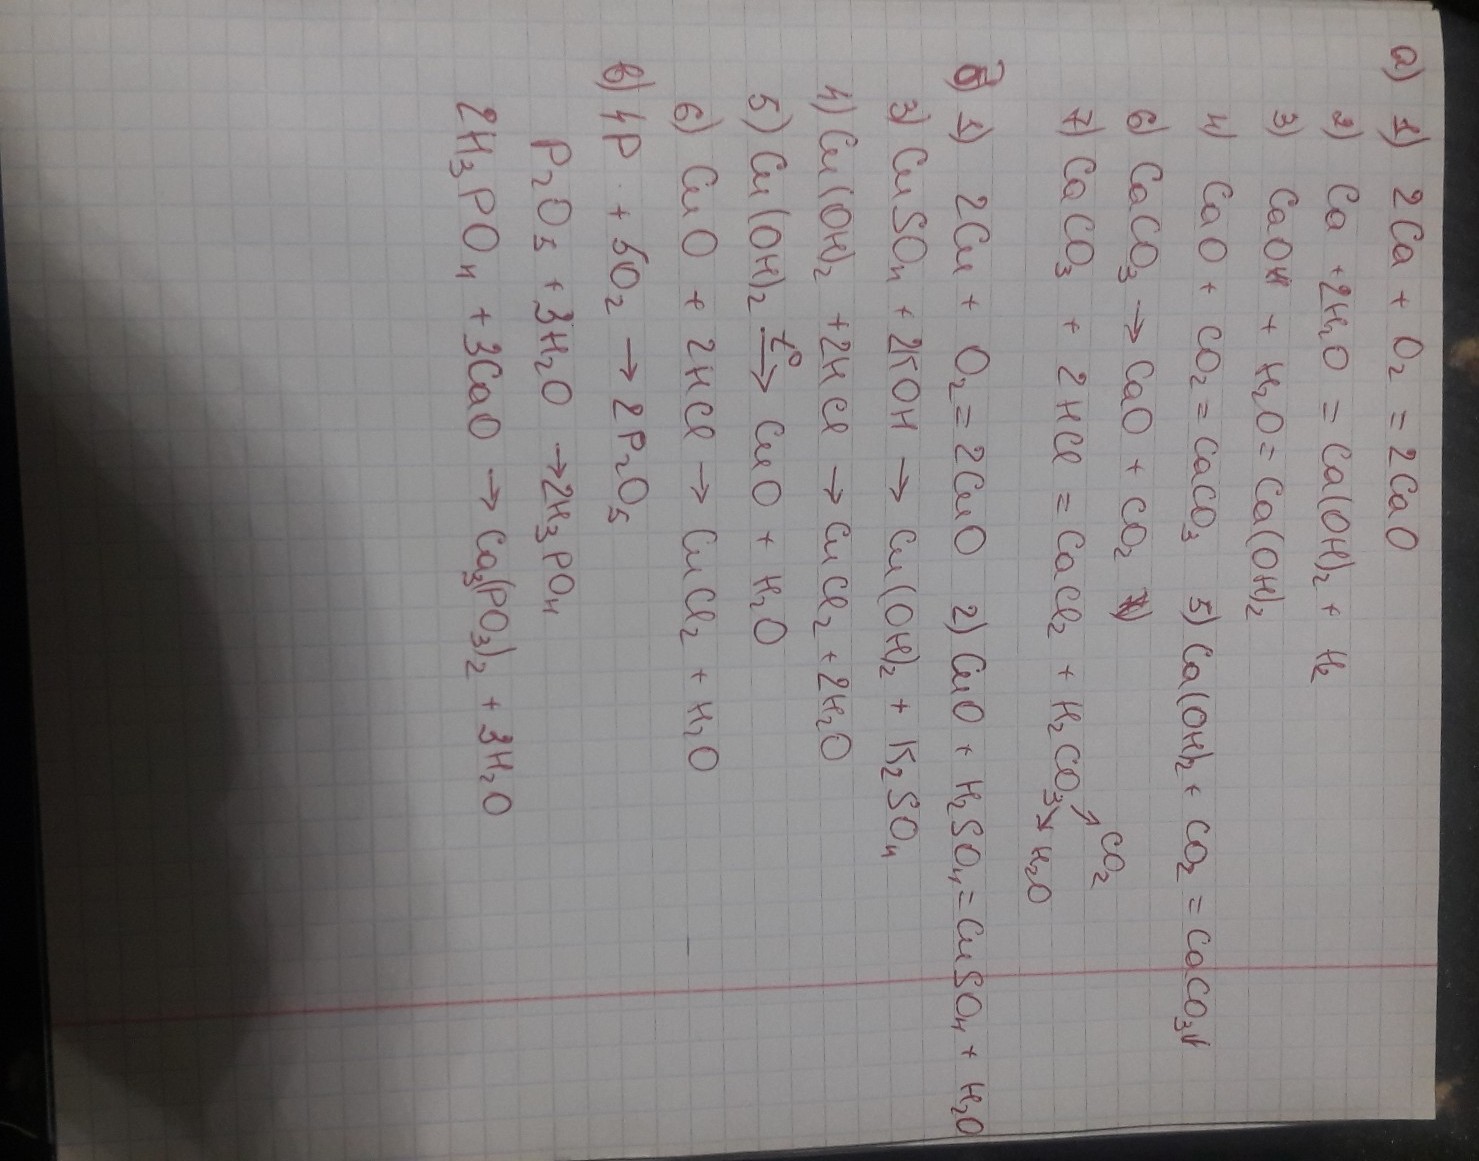 а) 1) 2Ca + O₂ = 2CaO
2) Ca + 2H₂O = Ca(OH)₂ + H₂
3) CaOH + H₂O = Ca(OH)₂
4) CaO + CO₂ = CaCO₃ 5) Ca(OH)₂ + CO₂ = CaCO₃↓
6) CaCO₃ → CaO + CO₂
7) CaCO₃ + 2HCl = CaCl₂ + H₂CO₃ ↗ CO₂ ↘ H₂O
б) 1) 2Cu + O₂ = 2CuO 2) CuO + H₂SO₄ = CuSO₄ + H₂O
3) CuSO₄ + 2KOH → Cu(OH)₂ + K₂SO₄
4) Cu(OH)₂ + 2HCl → CuCl₂ + 2H₂O
5) Cu(OH)₂ t°→ CuO + H₂O
6) CuO + 2HCl → CuCl₂ + H₂O
в) 4P + 5O₂ → 2P₂O₅
P₂O₅ + 3H₂O → 2H₃PO₄
2H₃PO₄ + 3CaO → Ca₃(PO₃)₂ + 3H₂O